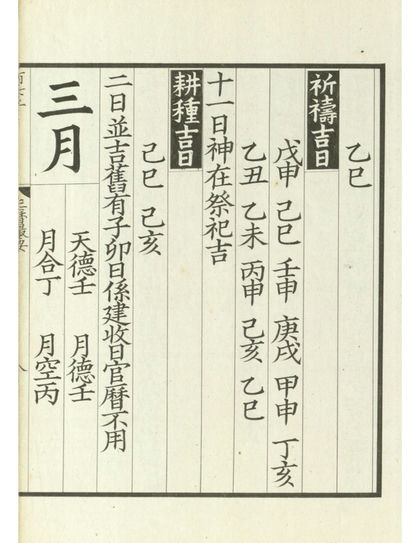 乙巳
祈禱吉日
戊申 己巳 壬申 庚戌 甲申 丁亥
乙丑 乙未 丙申 己亥 乙巳
十一日神在祭祀吉
耕種吉日
己巳 己亥
二日並吉舊有子卯日係建收日官曆不用
三月
天德壬 月德壬
月合丁 月空丙
八